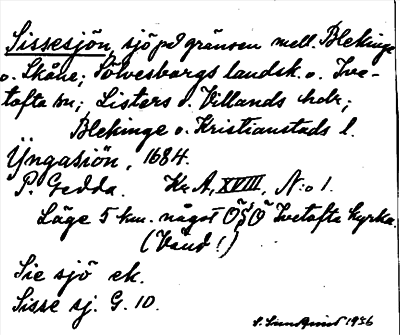 Sissesjön, sjö på gränsen mell. Blekinge
o. Skåne; Sölvesborgs landsk. o. Ive-
tofta sn; Listers o. Villands hdr;
Blekinge o. Kristianstads l.
Yngasiön, 1684.
P. Gedda. Kr.A, XVIII, N:o 1.
Läge 5 km. något ÖSÖ Ivetofta kyrka.
(Vånd!)
Sie sjö ek.
Sisse sj. G. 10.
S. 1956